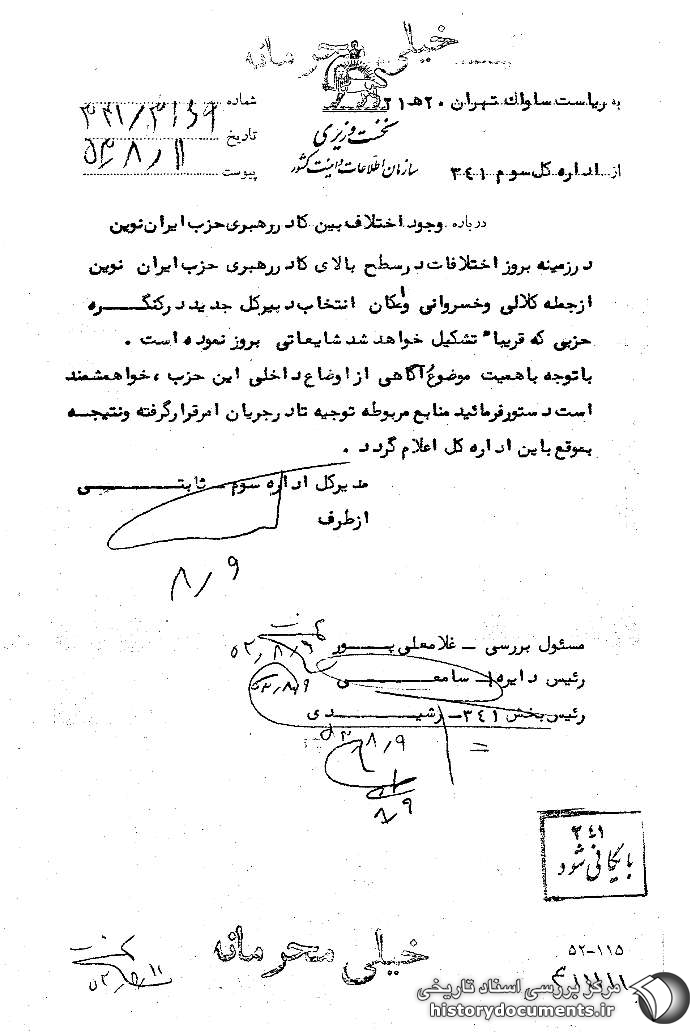 خیلی محرمانه
به ریاست ساواک تهران ۲۰هـ۲۱
شماره ۳۴۱/۳۱۶۹
نخست وزیری
تاریخ ۵۲/۸/۱۱
سازمان اطلاعات و امنیت کشور
از اداره کل سوم ۳۴۱
پیوست
درباره وجود اختلاف بین کادر رهبری حزب ایران نوین
در زمینه بروز اختلافات در سطح بالای کادر رهبری حزب ایران نوین
ازجمله کلالی و خسروانی و امکان انتخاب دبیرکل جدید در کنگـــره
حزبی که قریبا" تشکیل خواهد شد شایعاتی بروز نموده است .
باتوجه باهمیت موضوع آگاهی از اوضاع داخلی این حزب ، خواهشمند
است دستور فرمائید منابع مربوطه توجیه تا در جریان امر قرار گرفته و نتیجـــه
بموقع باین اداره کل اعلام گردد .
مدیرکل اداره سوم ــ ثابتــــــی
از طرف
۸/۹
مسئول بررسی ــ غلامعلی پـــور
۵۲/۸/۹
رئیس دایره ۱ــ سامعـــــی
۵۲/۸/۹
رئیس بخش ۳۴۱ــ رشیـــــدی
۵۲/۸/۹
۸/۹
۳۴۱
بایگانی شود
خیلی محرمانه
۵۲-۱۱۵
مرکز بررسی اسناد تاریخی
historydocuments.ir